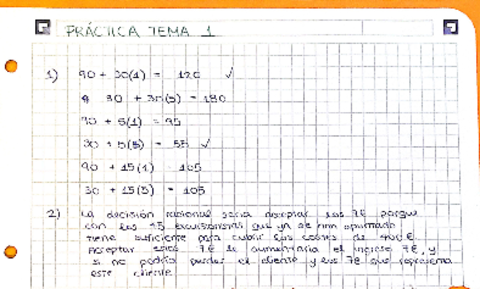 PRÁCTICA TEMA 1
1) 90 + 30(1) = 120 ✓
30 + 30(5) = 180
90 + 5(1) = 95
30 + 5(5) = 55 ✓
90 + 15(1) = 105
30 + 15(5) = 105
2) La decisión racional seria aceptar los 7€ porque
con los 45 excursionistas que ya se han apuntado
tiene suficiente para cubrir los costes de 400€
Aceptar esos 7€ le aumentaria el ingreso 7€, y
si no podría perder el cliente y los 7€ que representa
este cliente